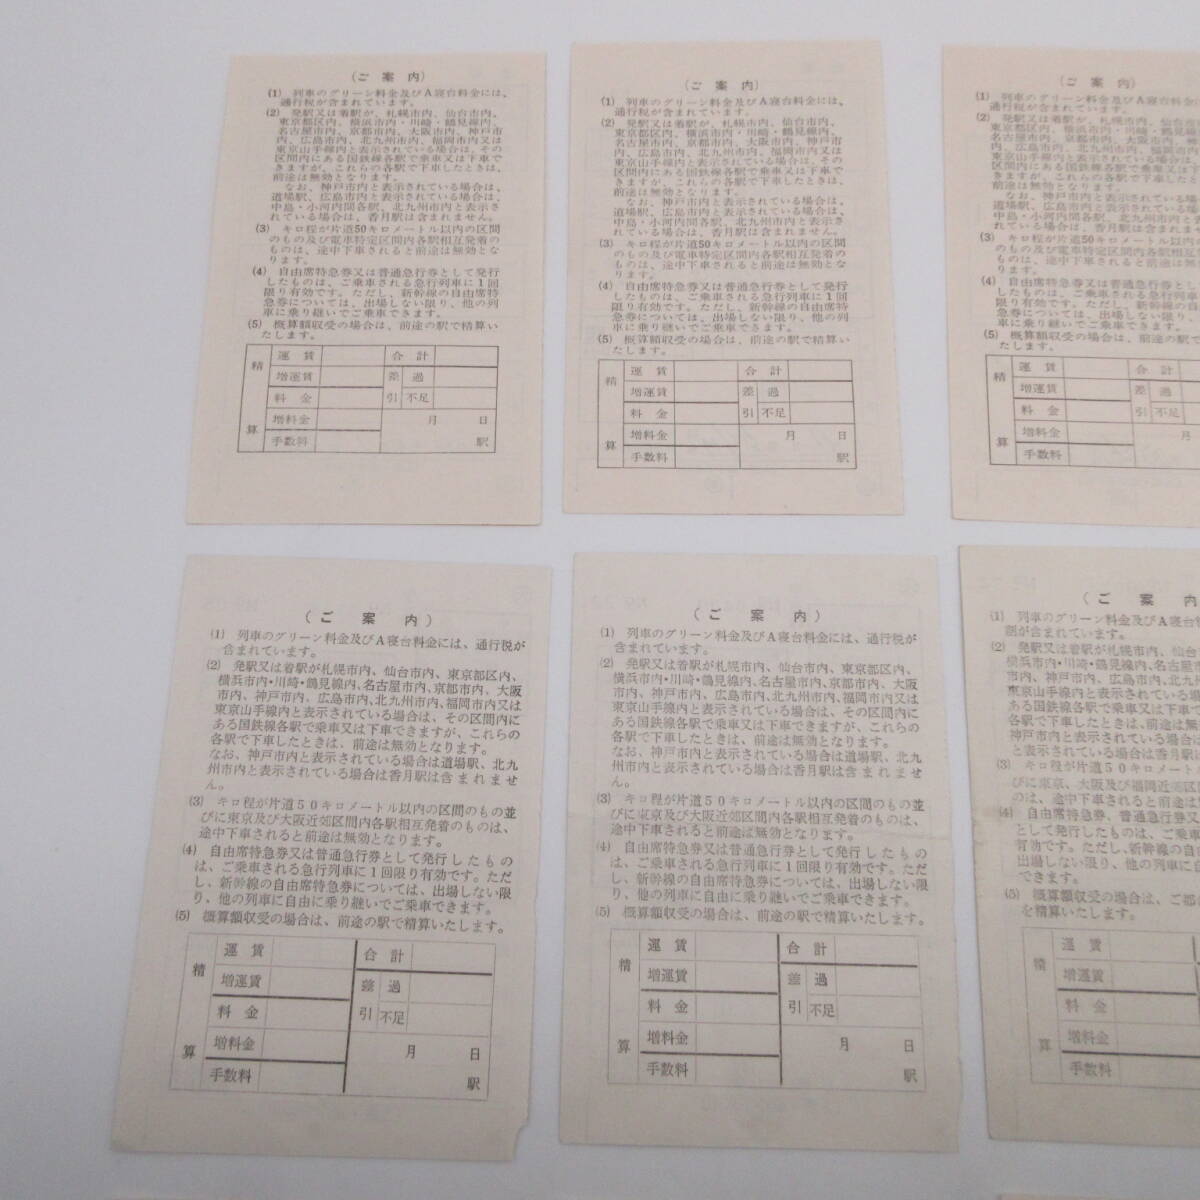 (ご案内)
(1) 列車のグリーン料金及びA寝台料金には、
通行税が含まれています。
(2) 発駅又は着駅が、札幌市内、仙台市内、
東京都区内、横浜市内・川崎・鶴見線内、
名古屋市内、京都市内、大阪市内、神戸市
内、広島市内、北九州市内、福岡市内又は
東京山手線内と表示されている場合は、その
区間内にある国鉄線各駅で乗車又は下車で
きますが、これらの各駅で下車したときは、
前途は無効となります。
なお、神戸市内と表示されている場合は、
道場駅、広島市内と表示されている場合は、
中島・小河内間各駅、北九州市内と表示さ
れている場合は、香月駅は含まれません。
(3) キロ程が片道50キロメートル以内の区間
のもの及び電車特定区間内各駅相互発着の
ものは、途中下車されると前途は無効とな
ります。
(4) 自由席特急券又は普通急行券として発行
したものは、ご乗車される急行列車に1回
限り有効です。ただし、新幹線の自由席特
急券については、出場しない限り、他の列
車に乗り継いでご乗車できます。
(5) 概算額収受の場合は、前途の駅で精算い
たします。
精算
運賃 合計
増運賃 差 過
料金 引 不足
増料金 月 日
手数料 駅
(ご案内)
(1) 列車のグリーン料金及びA寝台料金には、
通行税が含まれています。
(2) 発駅又は着駅が、札幌市内、仙台市内、
東京都区内、横浜市内・川崎・鶴見線内、
名古屋市内、京都市内、大阪市内、神戸市
内、広島市内、北九州市内、福岡市内又は
東京山手線内と表示されている場合は、その
区間内にある国鉄線各駅で乗車又は下車で
きますが、これらの各駅で下車したときは、
前途は無効となります。
なお、神戸市内と表示されている場合は、
道場駅、広島市内と表示されている場合は、
中島・小河内間各駅、北九州市内と表示さ
れている場合は、香月駅は含まれません。
(3) キロ程が片道50キロメートル以内の区間
のもの及び電車特定区間内各駅相互発着の
ものは、途中下車されると前途は無効とな
ります。
(4) 自由席特急券又は普通急行券として発行
したものは、ご乗車される急行列車に1回
限り有効です。ただし、新幹線の自由席特
急券については、出場しない限り、他の列
車に乗り継いでご乗車できます。
(5) 概算額収受の場合は、前途の駅で精算い
たします。
精算
運賃 合計
増運賃 差 過
料金 引 不足
増料金 月 日
手数料 駅
(ご案内)
(1) 列車のグリーン料金及びA寝台料金に
通行税が含まれています。
(2) 発駅又は着駅が、札幌市内、仙台市
東京都区内、横浜市内・川崎・鶴見線
名古屋市内、京都市内、大阪市内、神
内、広島市内、北九州市内、福岡市内
東京山手線内と表示されている場合は
区間内にある国鉄線各駅で乗車又は下
きますが、これらの各駅で下車したと
前途は無効となります。
なお、神戸市内と表示されている場
道場駅、広島市内と表示されている場
中島・小河内間各駅、北九州市内と
れている場合は、香月駅は含まれませ
(3) キロ程が片道50キロメートル以内の
のもの及び電車特定区間内各駅相互発
ものは、途中下車されると前途は無効
ります。
(4) 自由席特急券又は普通急行券として
したものは、ご乗車される急行列車に
限り有効です。ただし、新幹線の自由
急券については、出場しない限り、他
車に乗り継いでご乗車できます。
(5) 概算額収受の場合は、前途の駅で
たします。
精算
運賃 合計
増運賃 差 過
料金 引 不足
増料金 月
手数料
(ご案内)
(1) 列車のグリーン料金及びA寝台料金には、通行税が
含まれています。
(2) 発駅又は着駅が札幌市内、仙台市内、東京都区内、
横浜市内・川崎・鶴見線内、名古屋市内、京都市内、大阪
市内、神戸市内、広島市内、北九州市内、福岡市内又は
東京山手線内と表示されている場合は、その区間内に
ある国鉄線各駅で乗車又は下車できますが、これらの
各駅で下車したときは、前途は無効となります。
なお、神戸市内と表示されている場合は道場駅、北九
州市内と表示されている場合は香月駅は含まれませ
ん。
(3) キロ程が片道50キロメートル以内の区間のもの並
びに東京及び大阪近郊区間内各駅相互発着のものは、
途中下車されると前途は無効となります。
(4) 自由席特急券又は普通急行券として発行したもの
は、ご乗車される急行列車に1回限り有効です。ただ
し、新幹線の自由席特急券については、出場しない限
り、他の列車に自由に乗り継いでご乗車できます。
(5) 概算額収受の場合は、前途の駅で精算いたします。
精算
運賃 合計
増運賃 差 過
料金 引 不足
増料金 月 日
手数料 駅
(ご案内)
(1) 列車のグリーン料金及びA寝台料金には、通行税が
含まれています。
(2) 発駅又は着駅が札幌市内、仙台市内、東京都区内、
横浜市内・川崎・鶴見線内、名古屋市内、京都市内、大阪
市内、神戸市内、広島市内、北九州市内、福岡市内又は
東京山手線内と表示されている場合は、その区間内に
ある国鉄線各駅で乗車又は下車できますが、これらの
各駅で下車したときは、前途は無効となります。
なお、神戸市内と表示されている場合は道場駅、北九
州市内と表示されている場合は香月駅は含まれませ
ん。
(3) キロ程が片道50キロメートル以内の区間のもの並
びに東京及び大阪近郊区間内各駅相互発着のものは、
途中下車されると前途は無効となります。
(4) 自由席特急券又は普通急行券として発行したもの
は、ご乗車される急行列車に1回限り有効です。ただ
し、新幹線の自由席特急券については、出場しない限
り、他の列車に自由に乗り継いでご乗車できます。
(5) 概算額収受の場合は、前途の駅で精算いたします。
精算
運賃 合計
増運賃 差 過
料金 引 不足
増料金 月 日
手数料 駅
(ご案内
(1) 列車のグリーン料金及びA寝台
が含まれています。
(2) 発駅又は着駅が札幌市内、仙台
横浜市内・川崎・鶴見線内、名古屋
市内、神戸市内、広島市内、北九州
東京山手線内と表示されている場
ある国鉄線各駅で乗車又は下車で
各駅で下車したときは、前途は無
なお、神戸市内と表示されている
と表示されている場合は香月駅は
(3) キロ程が片道50キロメートル
びに東京、大阪及び福岡近郊区間
のは、途中下車されると前途は無
(4) 自由席特急券、普通急行券
として発行したものは、ご乗車
有効です。ただし、新幹線の自由
出場しない限り、他の列車に自
できます。
(5) 概算額収受の場合は、
を精算いたします。
精算
運賃
増運賃
料金
増料金
手数料